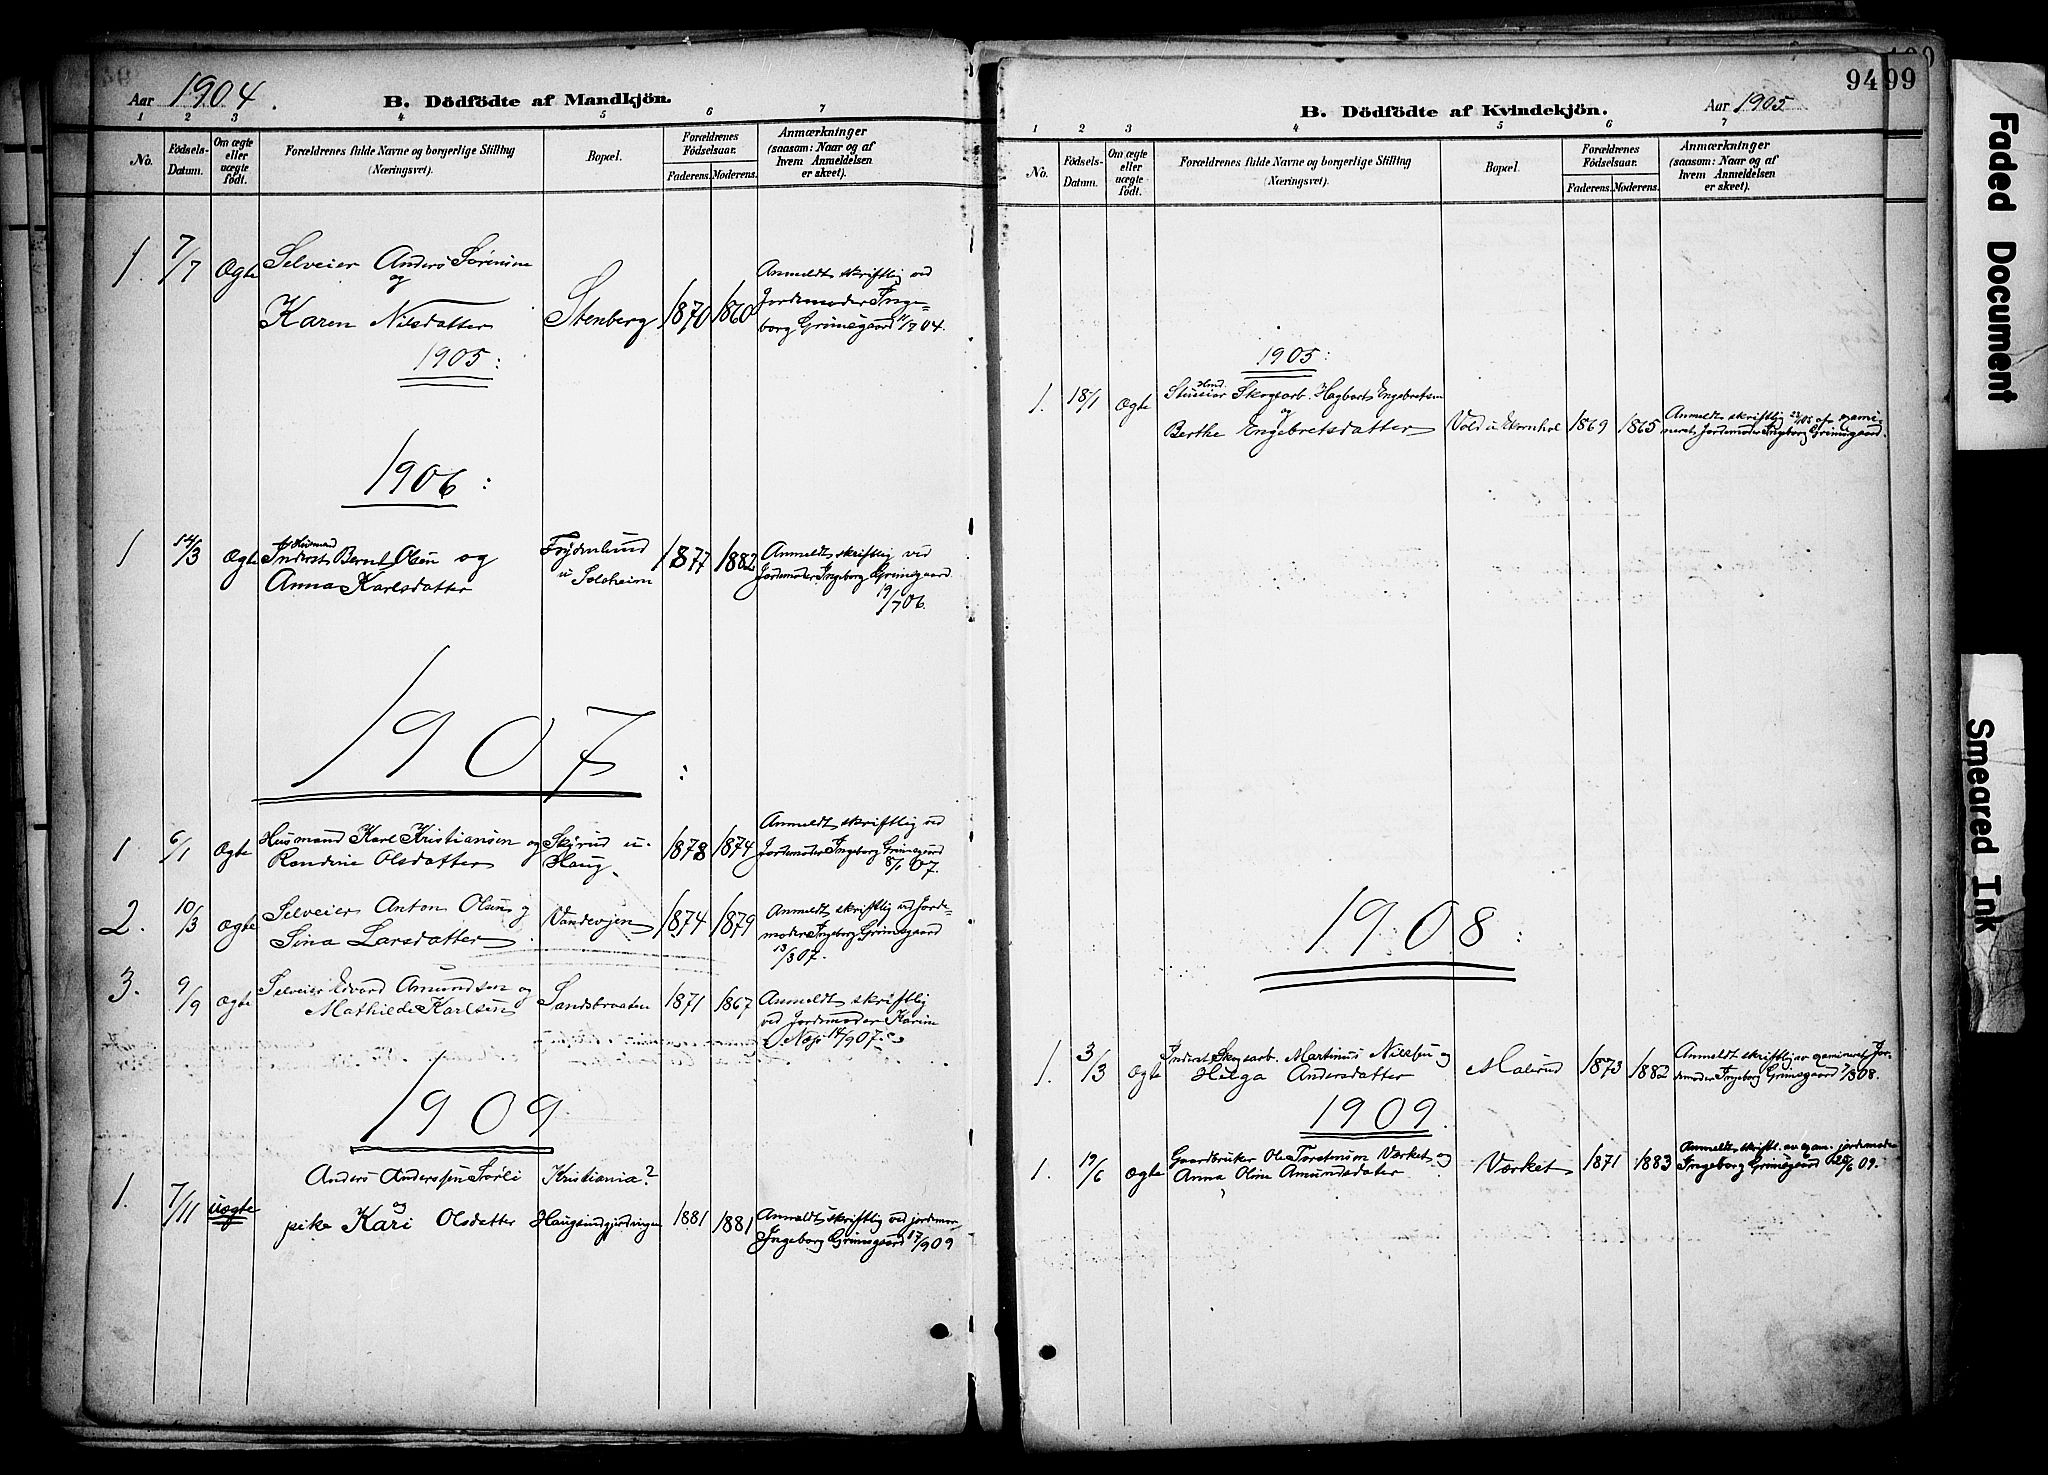 Aar 1904.
B. Dödfödte af Mandkjön.
1 2 3 4 5 6 7
No.
Födsels-
Datum.
Om ægte
eller
uægte
födt.
Forældrenes fulde Navne og borgerlige Stilling
(Næringsvei).
Bopæl.
Forældrenes
Födselsaar.
Faderens. Moderens.
Anmærkninger
(saasom: Naar og af
hvem Anmeldelsen
er skeet).
1. 7/7 Ægte Selveier Anders Sörensen
og
Karen Nilsdatter Stenberg 1870 1860
Anmeldt skriftlig ved
Jordemoder Inge-
borg Grimsgaard 11/7 04.
1905:
1906:
1 14/3 Ægte Husmand
Inderst Bernt Olsen og
Anna Karlsdatter
Frydenlund
u Solheim
1877 1882
Anmeldt skriftlig ved
Jordemoder Ingeborg Grimsgaard
19/7 06.
1907:
1 6/1 Ægte Husmand Karl Kristiansen og
Randine Olsdatter
Skjrud u.
Haug.
1878 1874
Anmeldt skriftlig ved
Jordemoder Ingeborg Grimsgaard
8/1 07.
2. 10/3 Ægte Selveier Anton Olsen og
Sina Larsdatter
Vandevjen 1874 1879
Anmeldt skriftlig ved Jorde-
moder Ingeborg Grimsgaard
13/3 07.
3. 9/9 Ægte Selveier Edvard Amundsen og
Mathilde Karlsen
Sandsbraaten 1871 1867
Anmeldt skriftlig
ved Jordemoder Karine
Næss 14/9 07.
1909.
1. 7/11 uægte Anders Anderssen Sørli
og
pike Kari Olsdatter
Kristiania?
1881 1881
Anmeldt skriftlig ved jordmor
Ingeborg Grimsgaard 17/9 09
9499
B. Dödfödte af Kvindekjön.
Aar 1905
1 2 3 4 5 6 7
No.
Födsels-
Datum.
Om ægte
eller
uægte
födt.
Forældrenes fulde Navne og borgerlige Stilling
(Næringsvei).
Bopæl.
Forældrenes
Födselsaar.
Faderens. Moderens.
Anmærkninger
(saasom: Naar og af
hvem Anmeldelsen
er skeet).
1905:
1. 18/1 Ægte Skogsarb. Hagbart Engebretsen
og
Berthe Engebretsdatter
Vold u 1869 1865
Anmeldt skriftlig 22/1 05 af exami-
neret Jordemoder Ingeborg Grimsgaard.
1908:
1. 3/3 Ægte Inderst Skogsarb. Martinus Nilssen og
Helga Andersdatter
Malerud 1873 1882
Anmeldt skriftlig av examineret Jor-
demoder Ingeborg Grimsgaard 7/3 08.
1909.
1. 19/6 Ægte Gaardbruker Ole Torstensen Værket og
Anna Oline Amundsdatter
Værket 1871 1883
Anmeldt skriftl. av exam. jordemoder
Ingeborg Grimsgaard 20/6 09.
Faded Document
Smeared Ink